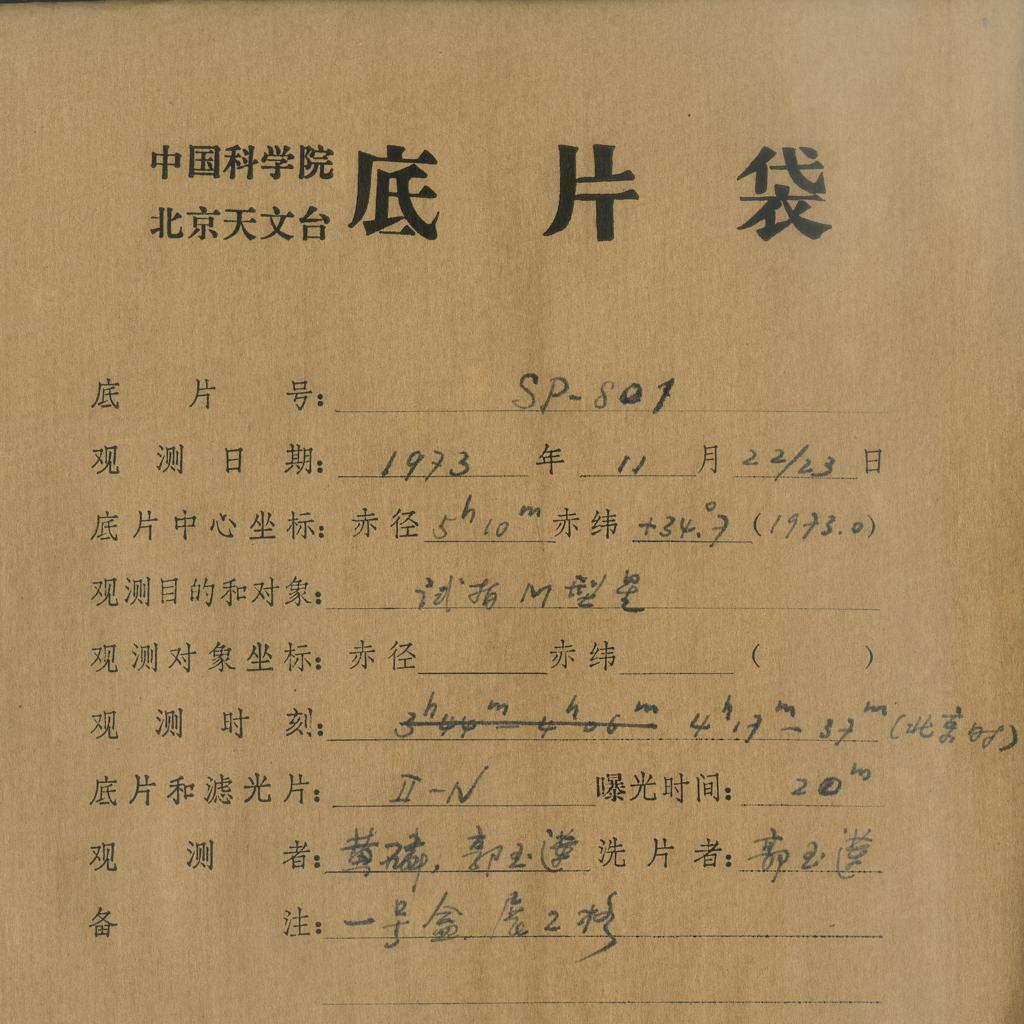 中国科学院
北京天文台
底片袋
底片号: SP-801
观测日期: 1973年 11月 22/23日
底片中心坐标: 赤径 5h10m 赤纬 +34.°7 (1973.0)
观测目的和对象: 试拍M型星
观测对象坐标: 赤径 赤纬 ( )
观测时刻: 3h44m-4h06m 4h17m-37m (北京时)
底片和滤光片: II-N 曝光时间: 20m
观测者: 黄磷, 郭玉 洗片者: 郭玉
备注: 一号盒 2格